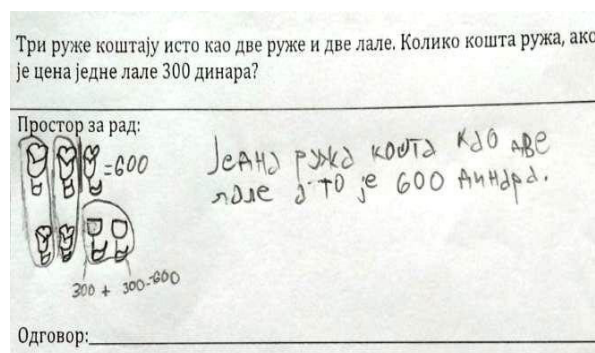 Три руже коштају исто као две руже и две лале. Колико кошта ружа, ако
је цена једне лале 300 динара?
Простор за рад:
=600
300 + 300=600
Једна ружа кошта као две
лале а то је 600 динара.
Одговор: